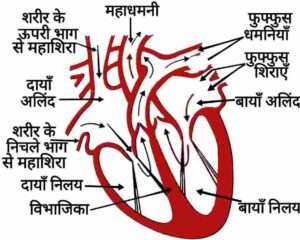 महाधमनी
शरीर के
ऊपरी भाग
से महाशिरा
फुफ्फुस
धमनियाँ
फुफ्फुस
शिराएँ
दायाँ
अलिंद
बायाँ अलिंद
शरीर के
निचले भाग
से महाशिरा
दायाँ निलय
विभाजिका
बायाँ निलय